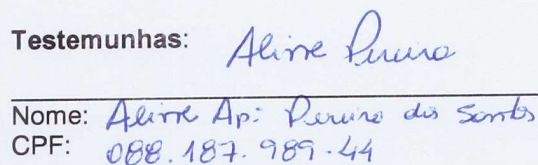 Testemunhas: Aline Pereira
Nome: Aline Ap: Pereira dos Santos
CPF: 088.187.989-44